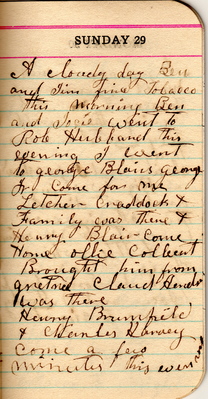 SUNDAY 29
A cloudy day Ben
and Jim fired Tobacco
this morning Ben
and Josie went to
Rob Husband this
evening I went
to george Blairs george
Jr come for me
Letcher Craddock &
Family was there &
Henry. Blair Come
Home ollie Colbert
Brought him from
Claud
was there
Henry Brumfield
& Charles Harvey
come a few
minutes this evening